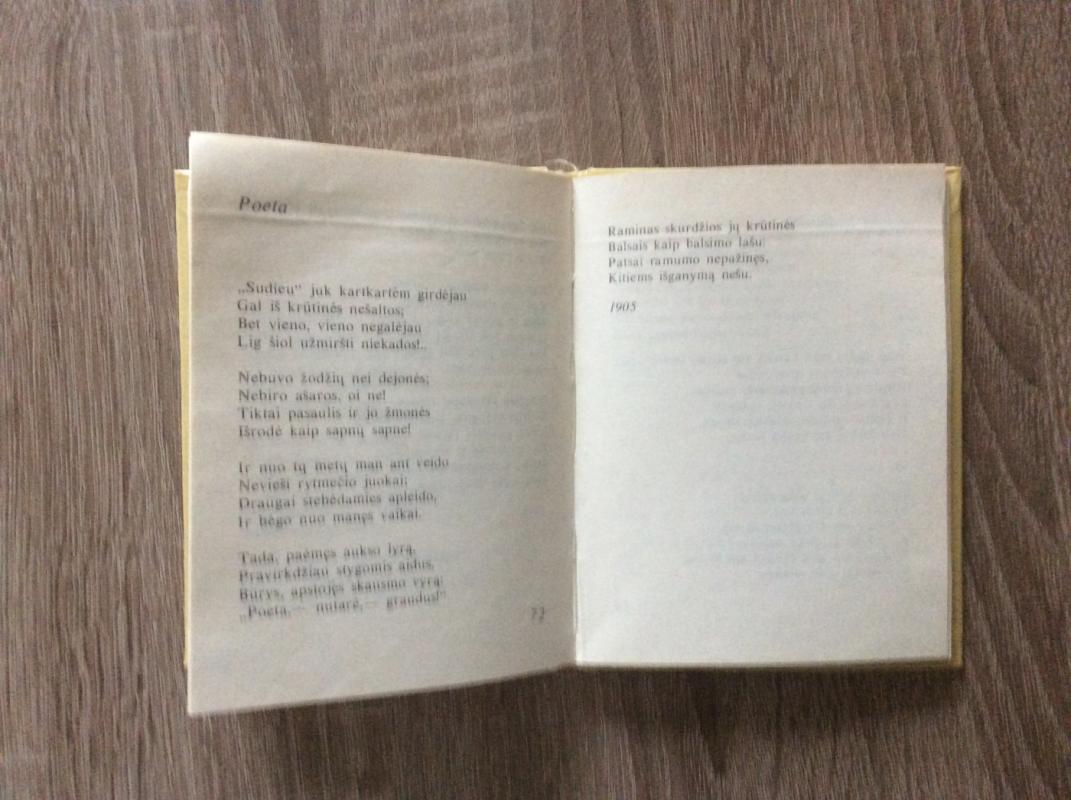 Poeta
„Sudieu“ juk kartkartėm girdėjau
Gal iš krūtinės nešaltos;
Bet vieno, vieno negalėjau
Lig šiol užmiršti niekados!..
Nebuvo žodžių nei dejonės;
Nebiro ašaros, oi ne!
Tiktai pasaulis ir jo žmonės
Išrodė kaip sapnų sapne!
Ir nuo tų metų man ant veido
Nevieši rytmečio juokai;
Draugai stebėdamies apleido,
Ir bėgo nuo manęs vaikai.
Tada, paėmęs aukso lyrą,
Pravirkdžiau stygomis aidus,
Būrys, apstojęs skausmo vyrą:
„Poeta,— nutarė,— graudus!“
77
Raminas skurdžios jų krūtinės
Balsais kaip balsimo lašu:
Patsai ramumo nepažinęs,
Kitiems išganymą nešu.
1905